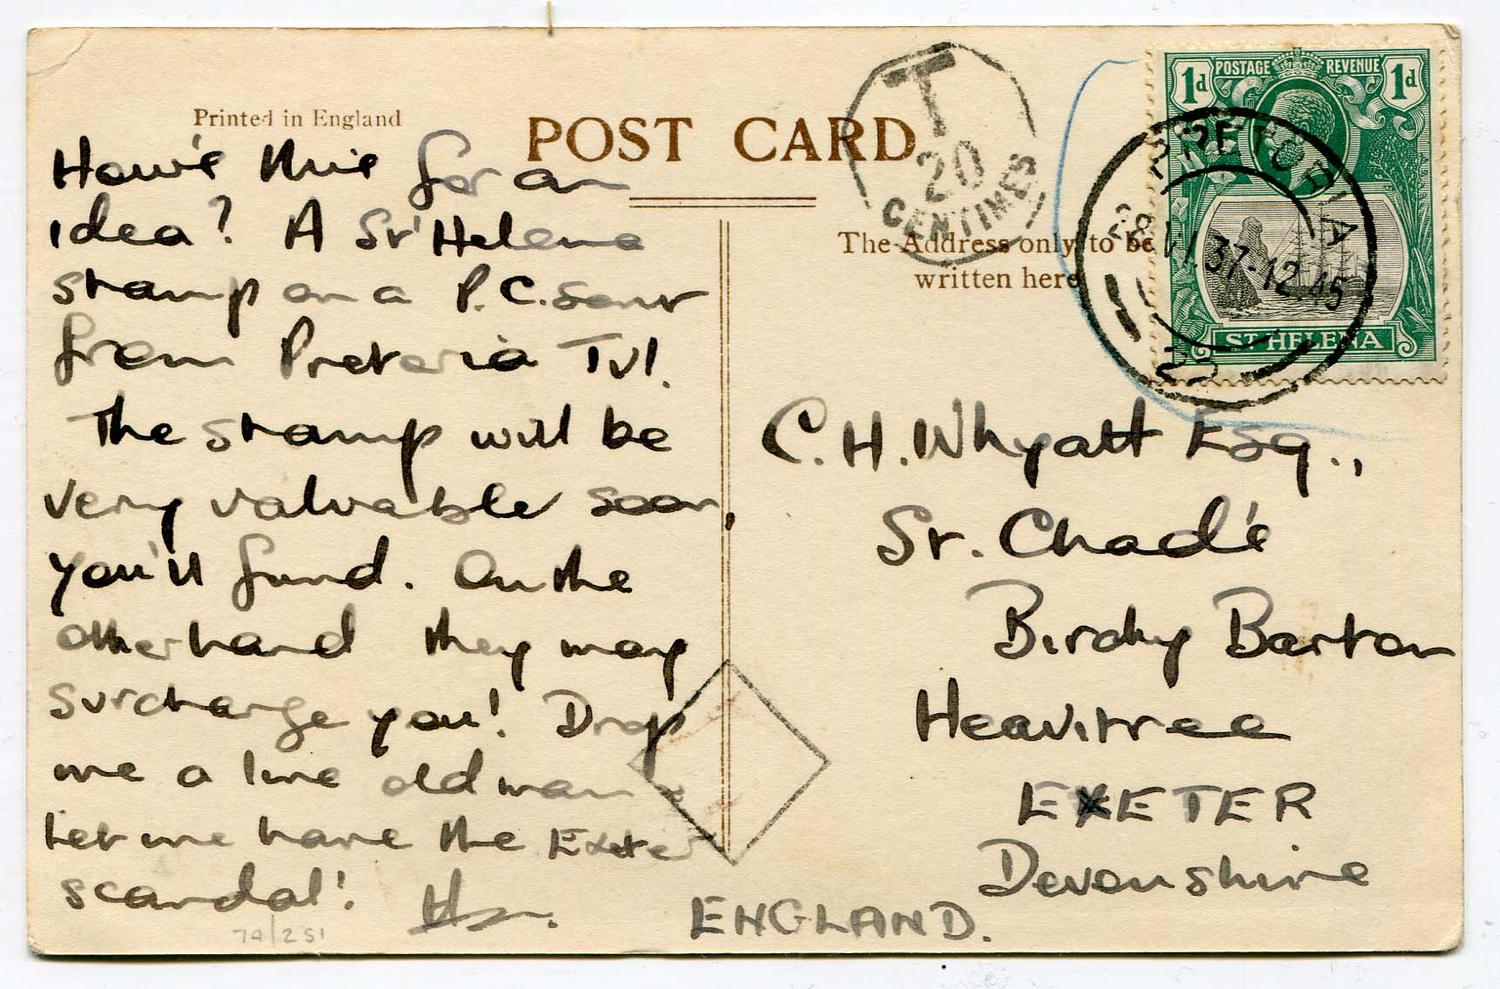 Printed in England
POST CARD
The Address only to be
written here
T
20
CENTIMES
1d POSTAGE REVENUE 1d
ST HELENA
PRETORIA
28 VI 37-12.45
22
How's this for an
idea? A St Helena
stamp on a P.C. sent
from Pretoria Tvl.
The stamp will be
very valuable soon,
you'll find. On the
other hand they may
surcharge you! Drop
me a line old man &
let me have the Exeter
scandal!
C.H. Whyatt Esq.,
St. Chad's
Birchy Barton
Heavitree
EXETER
Devonshire
ENGLAND.